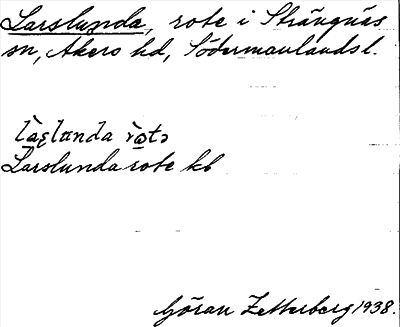 Larslunda, rote i Strängnäs
sn, Åkers hd, Södermanlands l.
Larslunda rote kb
Göran Zetterberg 1938.